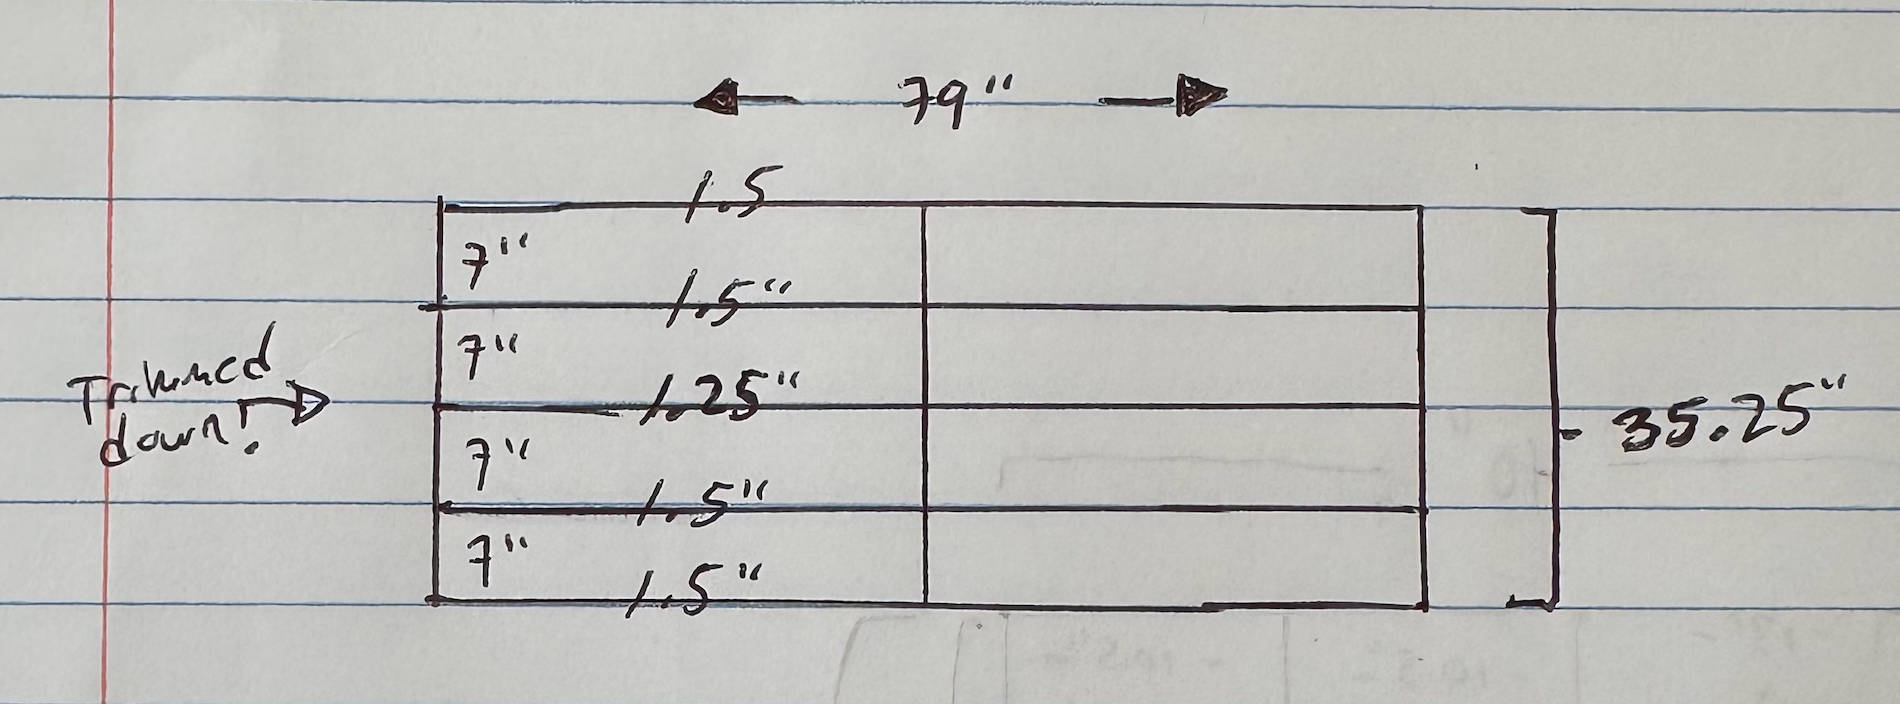 79"
1.5
7"
1.5"
7"
Trimmed
down!
1.25"
35.25"
7"
1.5"
7"
1.5"